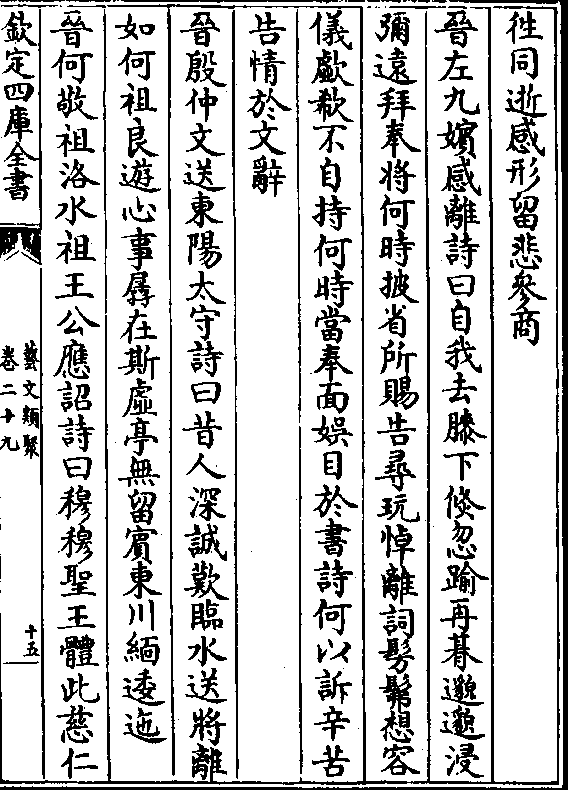 徃同逝感形留悲參商
晉左九嬪感離詩曰自我去膝下倐忽踰再朞邈邈浸
彌遠拜奉將何時披省所賜告尋玩悼離詞髣髴想容
儀歔欷不自持何時當奉面娛目於書詩何以訴辛苦
告情於文辭
晉殷仲文送東陽太守詩曰昔人深誠歎臨水送將離
如何祖良遊心事孱在斯虛亭無留賓東川緬逶迤
晉何敬祖洛水祖王公應詔詩曰穆穆聖王體此慈仁
欽定四庫全書
藝文類聚
卷二十九
十五